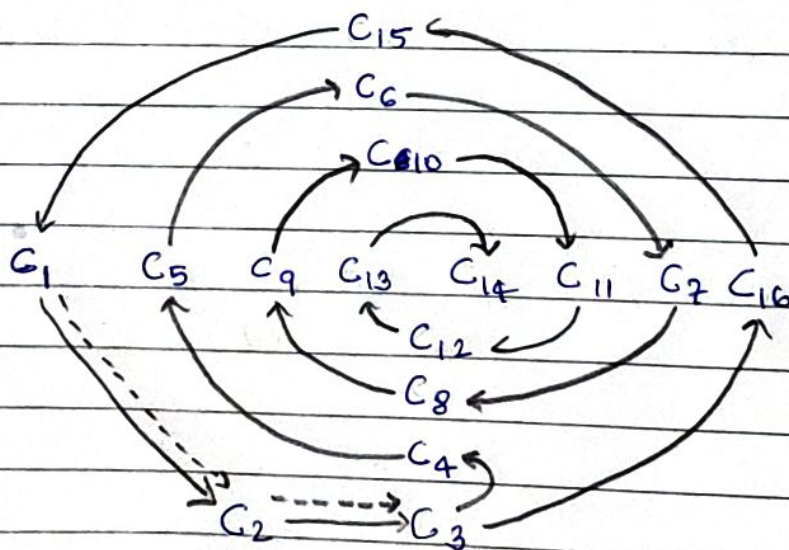 C15
C6
C10
C1 C5 C9 C13 C14 C11 C7 C16
C12
C8
C4
C2 C3